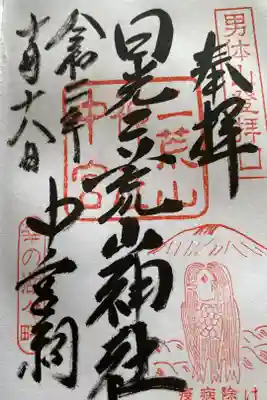 男体山登拝口
奉拝
日光二荒山神社
中宮祠
令和二年
十月十八日
疫病除け